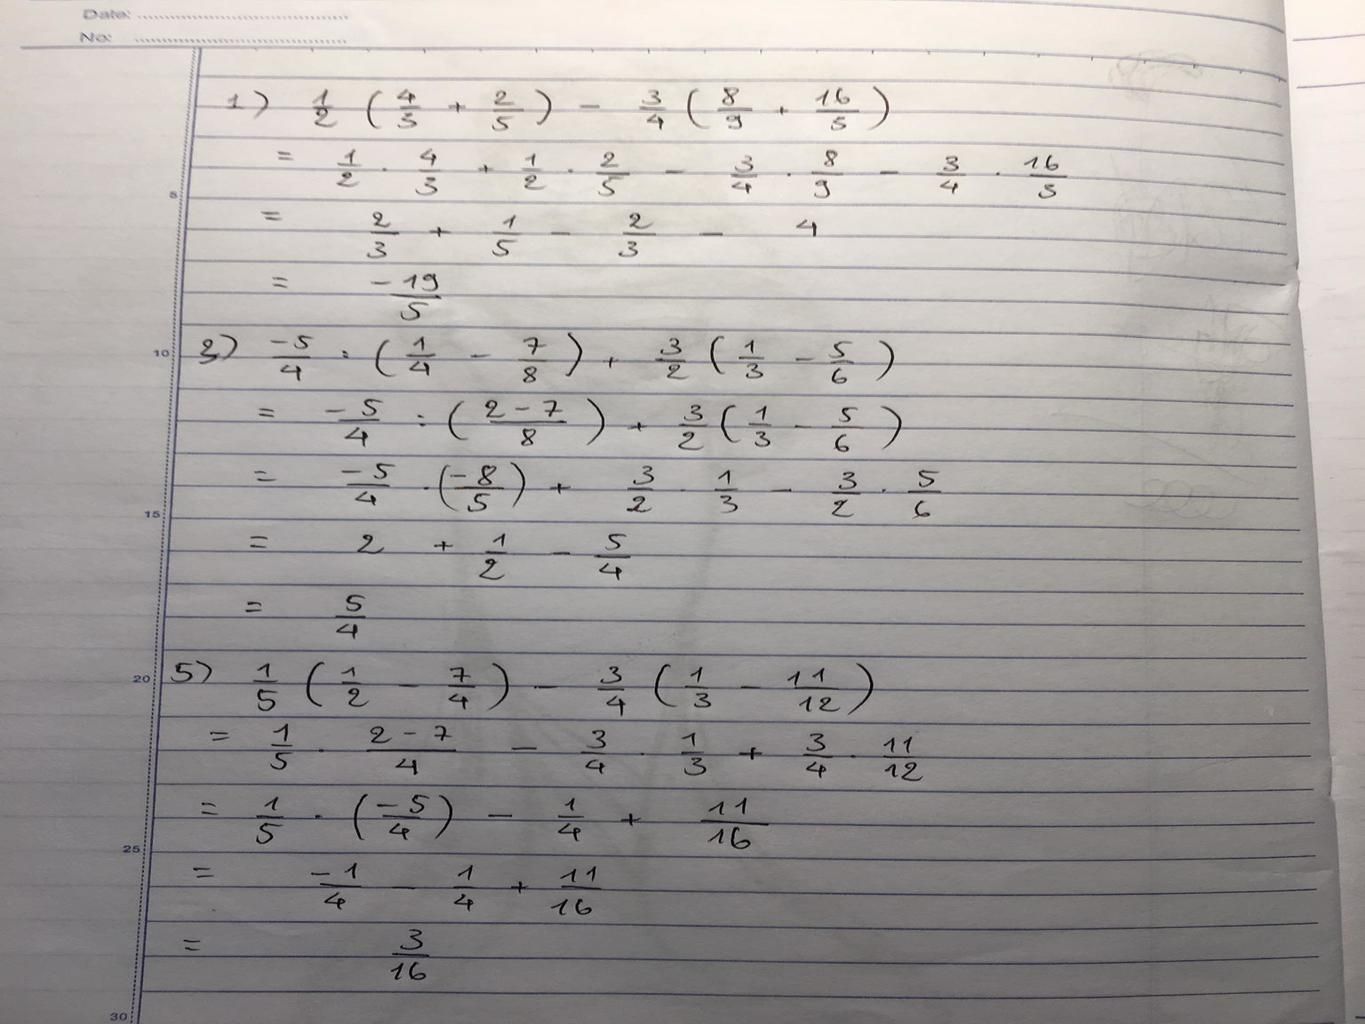 Date: ........................................
No: ........................................
1) 1/2 (4/3 + 2/5) - 3/4 (8/9 + 16/3)
= 1/2 . 4/3 + 1/2 . 2/5 - 3/4 . 8/9 - 3/4 . 16/3
5
= 2/3 + 1/5 - 2/3 - 4
= -19/5
10 3) -5/4 : (1/4 - 7/8) + 3/2 (1/3 - 5/6)
= -5/4 : (2-7/8) + 3/2 (1/3 - 5/6)
= -5/4 . (-8/5) + 3/2 . 1/3 - 3/2 . 5/6
15
= 2 + 1/2 - 5/4
= 5/4
20 5) 1/5 (1/2 - 7/4) - 3/4 (1/3 - 11/12)
= 1/5 . 2-7/4 - 3/4 . 1/3 + 3/4 . 11/12
= 1/5 . (-5/4) - 1/4 + 11/16
25
= -1/4 - 1/4 + 11/16
= 3/16
30